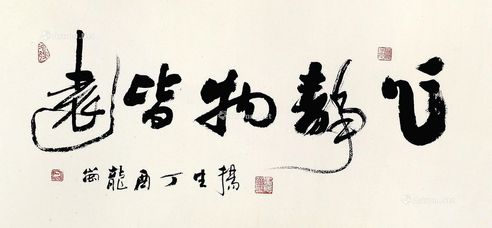 心靜物皆遠
揚生丁酉龍